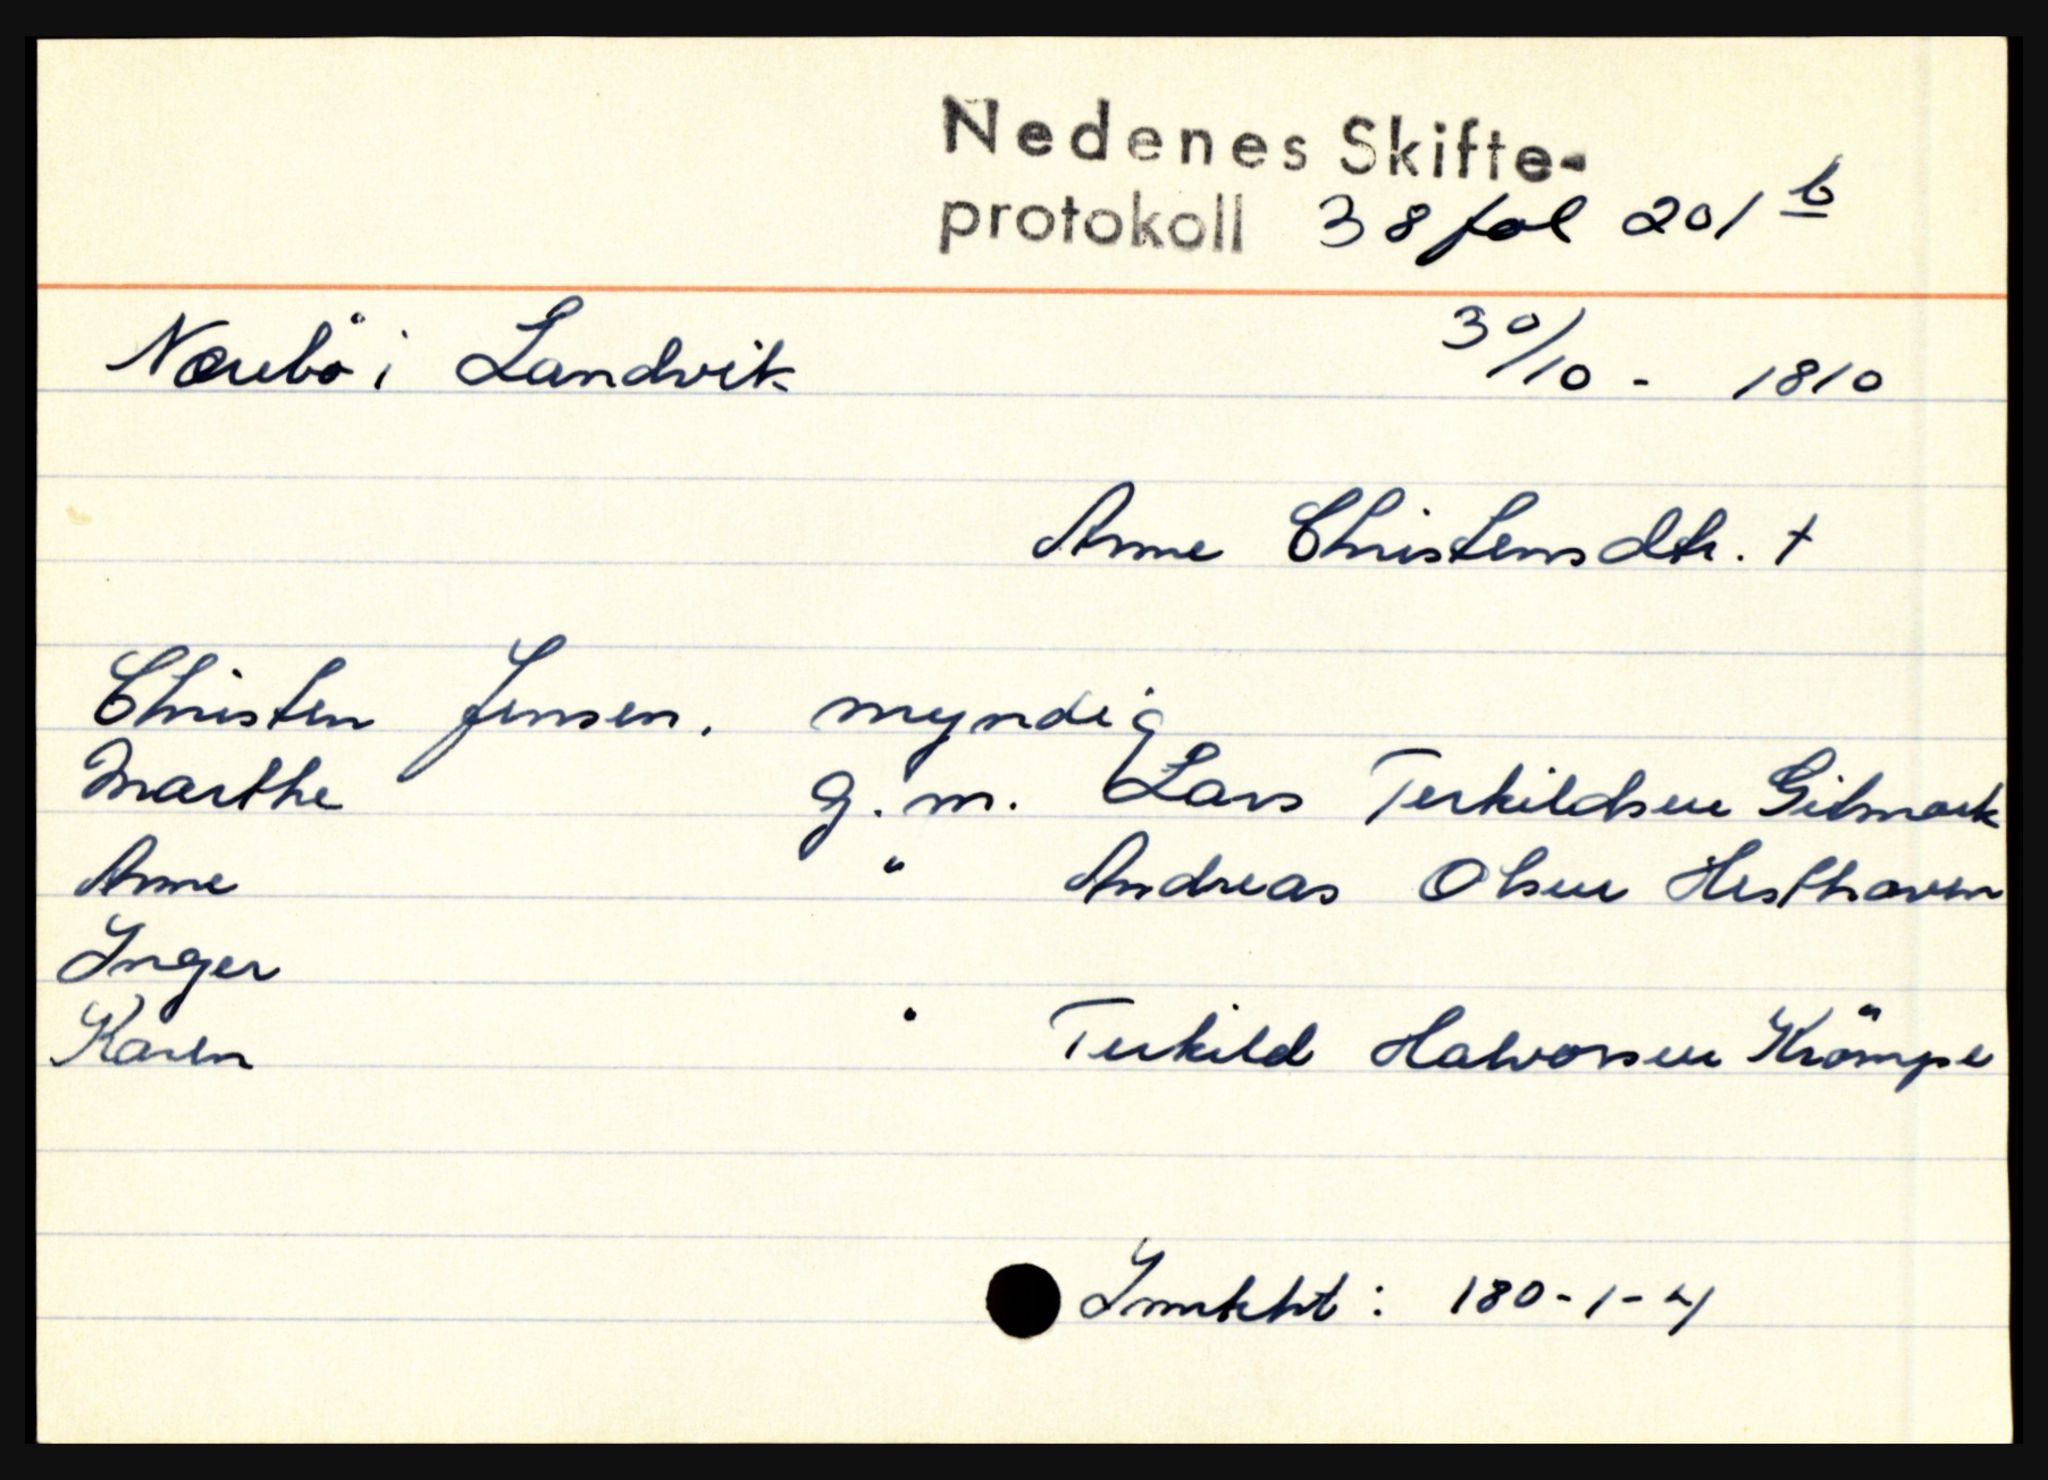 Nedenes Skifte-
protokoll 38 fol 201 b
Nærebö i Landvik 30/10 - 1810
Anne Christensdtr. †
Christen Jensen. myndig
Marthe g. m. Lars Terkildsen Gitmark
Anne " Andreas Olsen Hesthaven
Inger
Karen " Terkild Halvorsen Krömpe
: 180-1-4